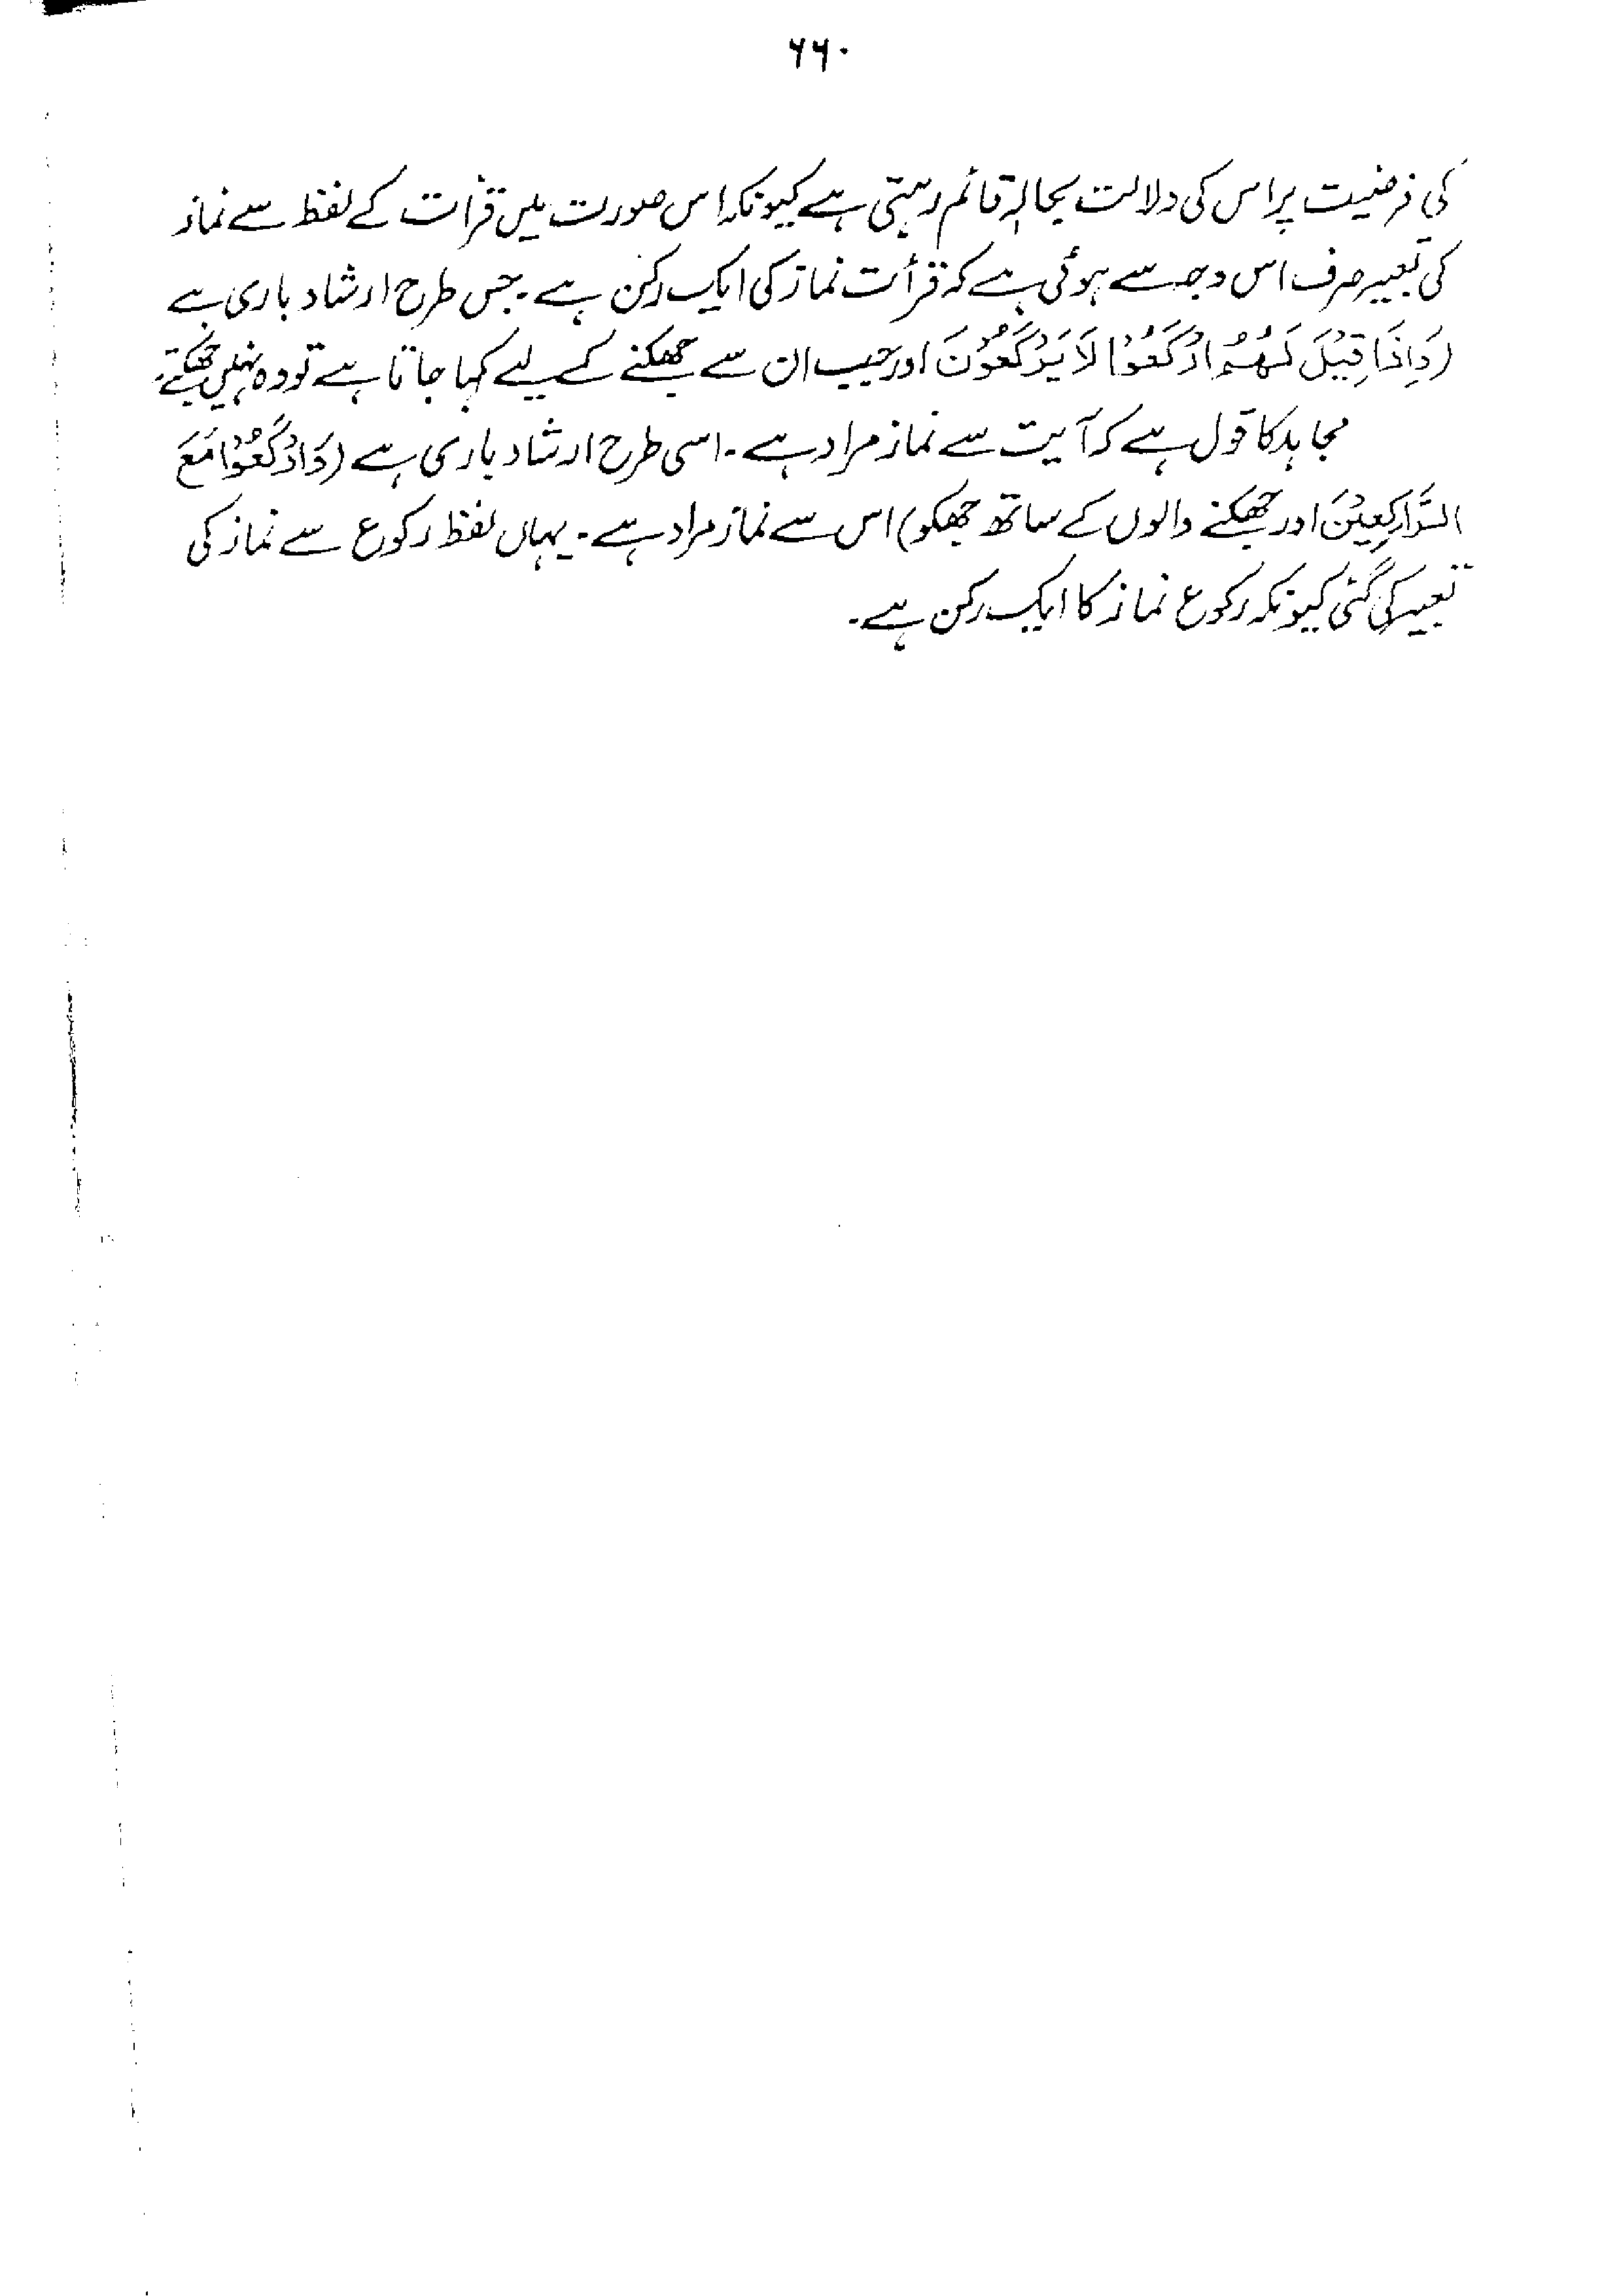 ۶۶۰
کی فرضیت پر اس کی دلالت بحالہٖ قائم رہتی ہے کیونکہ اس صورت میں قرأت کے لفظ سے نماز
کی تعبیر صرف اس وجہ سے ہوئی ہے کہ قرأت نماز کی ایک رکن ہے۔ جس طرح ارشاد باری ہے
(وَاِذَا قِيْلَ لَهُمُ ارْكَعُوْا لَا يَرْكَعُوْنَ اور جب ان سے جھکنے کے لیے کہا جاتا ہے تو وہ نہیں جھکتے
مجاہد کا قول ہے کہ آیت سے نماز مراد ہے۔ اسی طرح ارشاد باری ہے (وَارْكَعُوْا مَعَ
الرَّاكِعِيْنَ اور جھکنے والوں کے ساتھ جھکو) اس سے نماز مراد ہے۔ یہاں لفظ رکوع سے نماز کی
تعبیر کی گئی کیونکہ رکوع نماز کا ایک رکن ہے۔